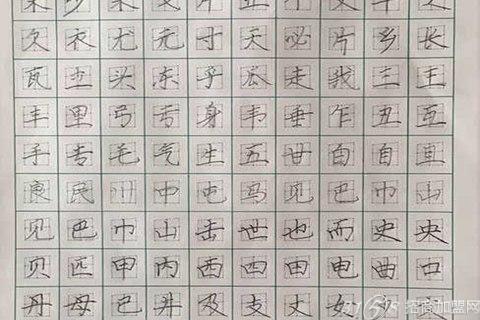 欠 衣 尤 元 寸 天 必 片 乡 长
瓦 头 东 乎 瓜 走 我 三 王
丰 里 弓 亏 身 韦 垂 乍 丑 互
手 专 毛 气 生 五 甘 白 自 直
良 民 川 中 屯 马 见 巴 巾 山
见 巴 巾 山 击 世 也 而 史 央
贝 匹 甲 内 西 四 由 电 曲 口
丹 母 巴 井 及 支 丈 女
招商加盟网